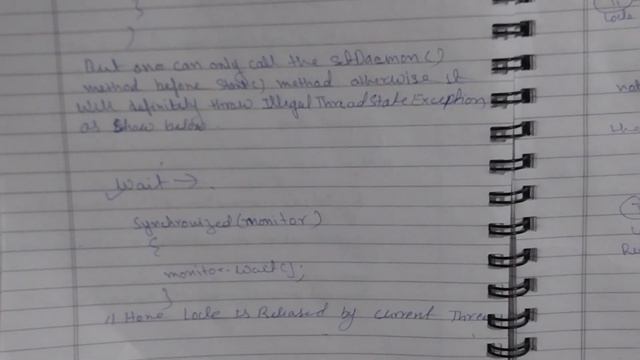 }
}
But one can only call the setDaemon()
method before start() method otherwise it
will definitely throw IllegalThreadStateException
as show below
Wait →
Synchronized(monitor)
{
monitor.wait();
}
// Hence Lock is Released by current Threa
Lock
not
Re